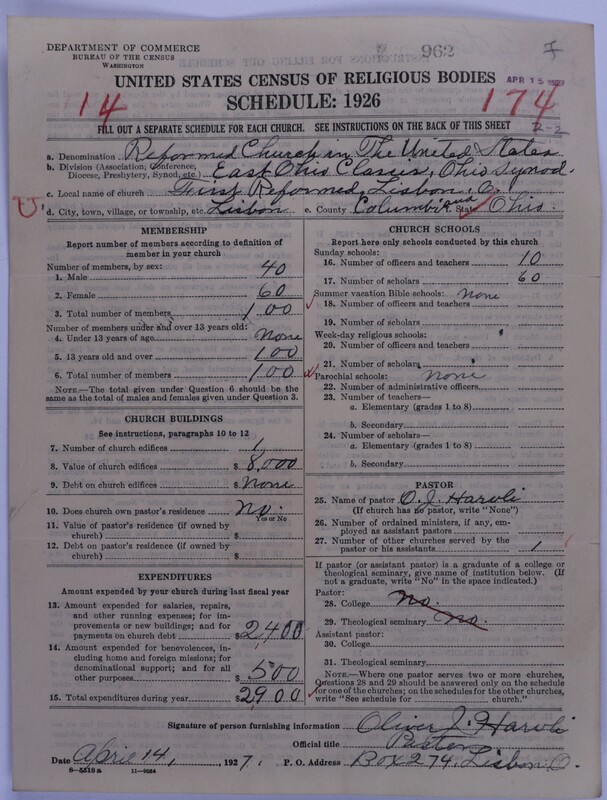 DEPARTMENT OF COMMERCE
BUREAU OF THE CENSUS
WASHINGTON
962
UNITED STATES CENSUS OF RELIGIOUS BODIES
APR 15
14
SCHEDULE: 1926
174
FILL OUT A SEPARATE SCHEDULE FOR EACH CHURCH. SEE INSTRUCTIONS ON THE BACK OF THIS SHEET
a. Denomination Reformed Church in The United States
b. Division (Association, Conference, Diocese, Presbytery, Synod, etc.) East Ohio Classis, Ohio Synod.
c. Local name of church First Reformed, Lisbon, O.
d. City, town, village, or township, etc. Lisbon e. County Columbiana State Ohio.
MEMBERSHIP
Report number of members according to definition of
member in your church
Number of members, by sex:
1. Male 40
2. Female 60
3. Total number of members 100
Number of members under and over 13 years old:
4. Under 13 years of age None
5. 13 years old and over 100
6. Total number of members 100
NOTE.—The total given under Question 6 should be
same as the total of males and females given under Question 3.
CHURCH BUILDINGS
See instructions, paragraphs 10 to 12
7. Number of church edifices 1
8. Value of church edifices $ 8,000
9. Debt on church edifices $ None
10. Does church own pastor's residence No.
Yes or No
11. Value of pastor's residence (if owned by
church) $
12. Debt on pastor's residence (if owned by
church) $
EXPENDITURES
Amount expended by your church during last fiscal year
13. Amount expended for salaries, repairs,
and other running expenses; for im-
provements or new buildings; and for
payments on church debt $ 2400
14. Amount expended for benevolences,
including home and foreign missions; for
denominational support; and for all
other purposes $ 500
15. Total expenditures during year $ 2900
CHURCH SCHOOLS
Report here only schools conducted by this church
Sunday schools:
16. Number of officers and teachers 10
17. Number of scholars 60
Summer vacation Bible schools: None
18. Number of officers and teachers
19. Number of scholars
Week-day religious schools:
20. Number of officers and teachers
21. Number of scholars
Parochial schools: None
22. Number of administrative officers
23. Number of teachers—
a. Elementary (grades 1 to 8)
b. Secondary
24. Number of scholars—
a. Elementary (grades 1 to 8)
b. Secondary
PASTOR
25. Name of pastor O. J.
(If church has no pastor, write "None")
26. Number of ordained ministers, if any, em-
ployed as assistant pastors
27. Number of other churches served by the
pastor or his assistants 1
If pastor (or assistant pastor) is a graduate of a college or
theological seminary, give name of institution below. (If
not a graduate, write "No" in the space indicated.)
Pastor:
28. College No.
29. Theological seminary No.
Assistant pastor:
30. College
31. Theological seminary
NOTE.—Where one pastor serves two or more churches,
Questions 28 and 29 should be answered only on the schedule
for one of the churches; on the schedules for the other churches,
write "See schedule for church."
Signature of person furnishing information Oliver J.
Official title Pastor
Date April 14, 1927. P. O. Address Box 274, Lisbon O.
8—5518a 11—9084